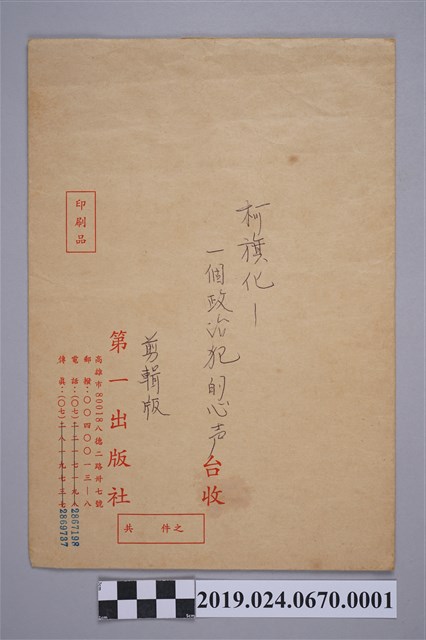 柯旗化—
一個政治犯的心声
剪輯版
台收
印刷品
第一出版社
高雄市80018八德二路卅七號
郵撥：００４００１３—８
電話：(〇七)二二一七一九八
傳真：(〇七)二八一九七三七
2867198
2869737
共　件之
2019.024.0670.0001